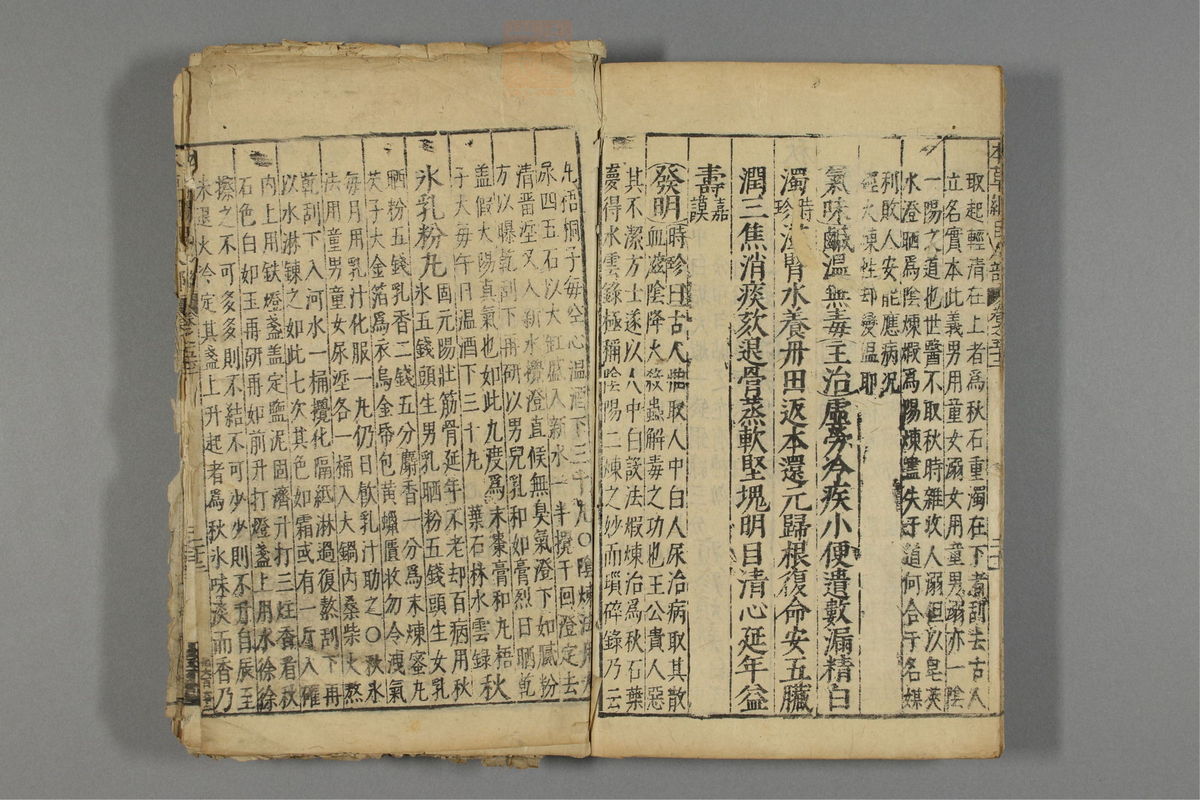 本草綱目人部 卷之五十二
取起輕清在上者爲秋石重濁在下煮刮去古人
立名實本此義男用童女溺女用童男溺亦一陰
一陽之道也世醫不取秋時雜收人溺但以皂莢
水澄晒爲陰煉煆爲陽煉盡失于道何合于名媒
利敗人安能應病況
經火煉性却變溫耶
氣味鹹溫無毒主治虛勞冷疾小便遺數漏精白
濁時珍滋腎水養丹田返本還元歸根復命安五臟
潤三焦消痰欬退骨蒸軟堅塊明目清心延年益
壽嘉謨
發明時珍曰古人惟取人中白人尿治病取其散
血滋陰降火殺蟲解毒之功也王公貴人惡
其不潔方士遂以人中白設法煆煉治爲秋石葉
夢得水雲錄極稱陰陽二煉之妙而瑣碎錄乃云
丸梧桐子每空心溫酒下三十丸○陰煉法用
尿四五石以大缸盛入新水一半攪千回澄定去
清畱垽又入新水攪澄直候無臭氣澄下如膩粉
方以曝乾刮下再研以男兒乳和如膏烈日晒乾
蓋假太陽真氣也如此九度爲末棗膏和丸梧
子大每午日溫酒下三十丸 葉石林水雲錄 秋
氷乳粉丸固元陽壯筋骨延年不老却百病用秋
氷五錢頭生男乳晒粉五錢頭生女乳
晒粉五錢乳香二錢五分麝香一分爲末煉蜜丸
芡子大金箔爲衣烏金帋包黃蠟匱收勿令洩氣
每月用乳汁化服一丸仍日飮乳汁助之○秋氷
法用童男童女尿垽各一桶入大鍋內桑柴火熬
乾刮下入河水一桶攪化隔紙淋過復熬刮下再
以水淋鍊之如此七次其色如霜或有一斤入礶
內上用鉄燈盞盖定鹽泥固濟升打三炷香看秋
石色白如玉再研再如前升打燈盞上用水徐徐
擦之不可多多則不結不可少少則不升自辰至
未退火冷定其盞上升起者爲秋氷味淡而香乃